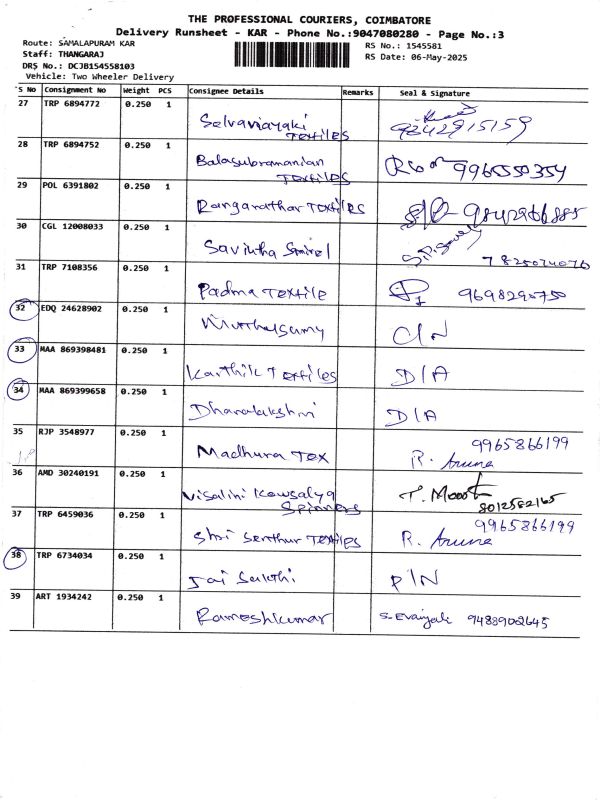 THE PROFESSIONAL COURIERS, COIMBATORE
Delivery Runsheet - KAR - Phone No.:9047080280 - Page No.:3
Route: SAMALAPURAM KAR
Staff: THANGARAJ
DRS No.: DCJB154558103
Vehicle: Two Wheeler Delivery
RS No.: 1545581
RS Date: 06-May-2025
S No Consignment No Weight PCS Consignee Details Remarks Seal & Signature
27 TRP 6894772 0.250 1 Selvavinayaki Textiles 9842915159
28 TRP 6894752 0.250 1 Balasubramanian Textiles 9965550354
29 POL 6391802 0.250 1 Ranganathar Textiles 9842966885
30 CGL 12008033 0.250 1 Savitha
31 TRP 7108356 0.250 1 Padma Textile 9698290750
32 EDQ 24628902 0.250 1 Muthusamy C/N
33 MAA 869398481 0.250 1 Karthik Textiles D/A
34 MAA 869399658 0.250 1 Dhanalakshmi D/A
35 RJP 3548977 0.250 1 Madhura Tex R. Aruna 9965866199
36 AMD 30240191 0.250 1 Visalini Kowsalya Spinners 8012582165
37 TRP 6459036 0.250 1 Shri Senthur Textiles R. Aruna 9965866199
38 TRP 6734034 0.250 1 Jai Sakthi P/N
39 ART 1934242 0.250 1 Rameshkumar 9488902645